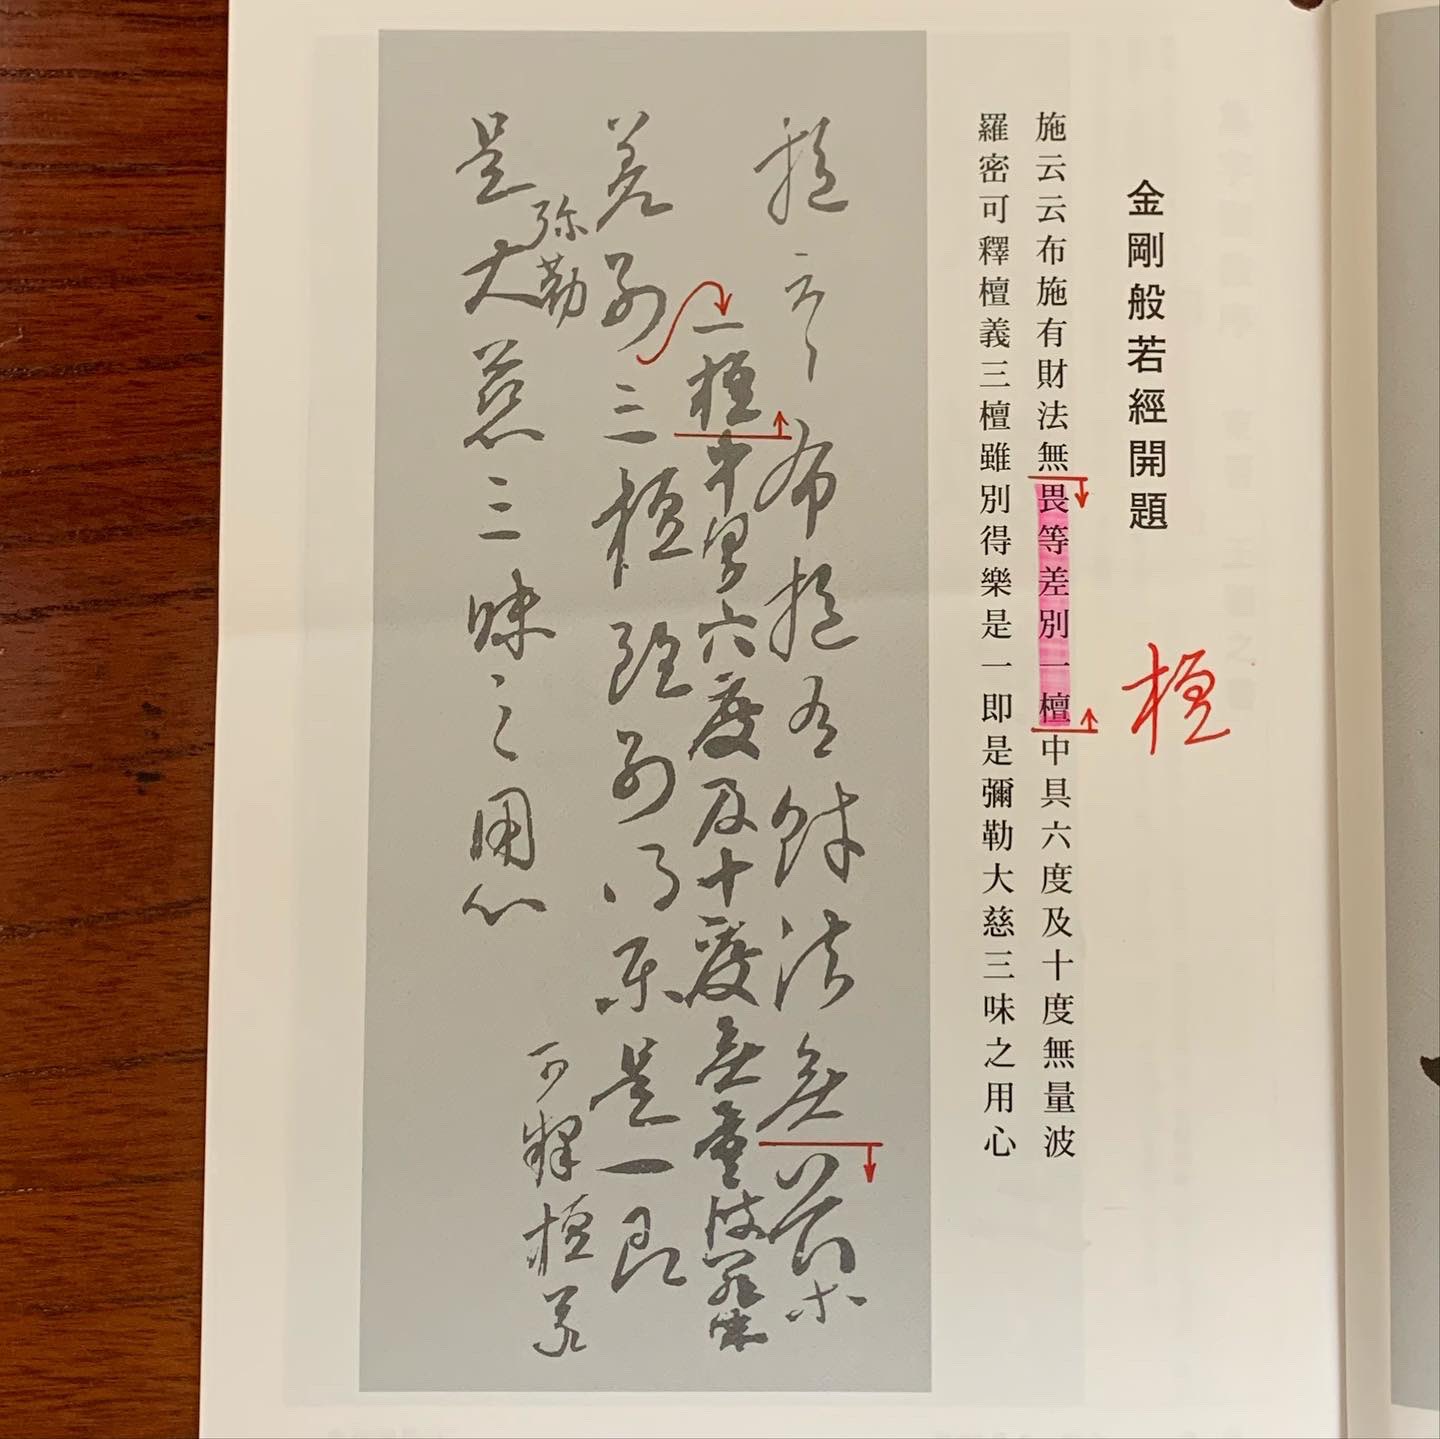 金剛般若經開題
施云云布施有財法無畏等差別一檀中具六度及十度無量波
羅密可釋檀義三檀雖別得樂是一即是彌勒大慈三味之用心
檀
施云云布施有財法無畏等
一檀中具六度及十度無量波羅蜜
差別三檀雖別得樂是一即
可釋檀義
弥勒
是大慈三昧之用心